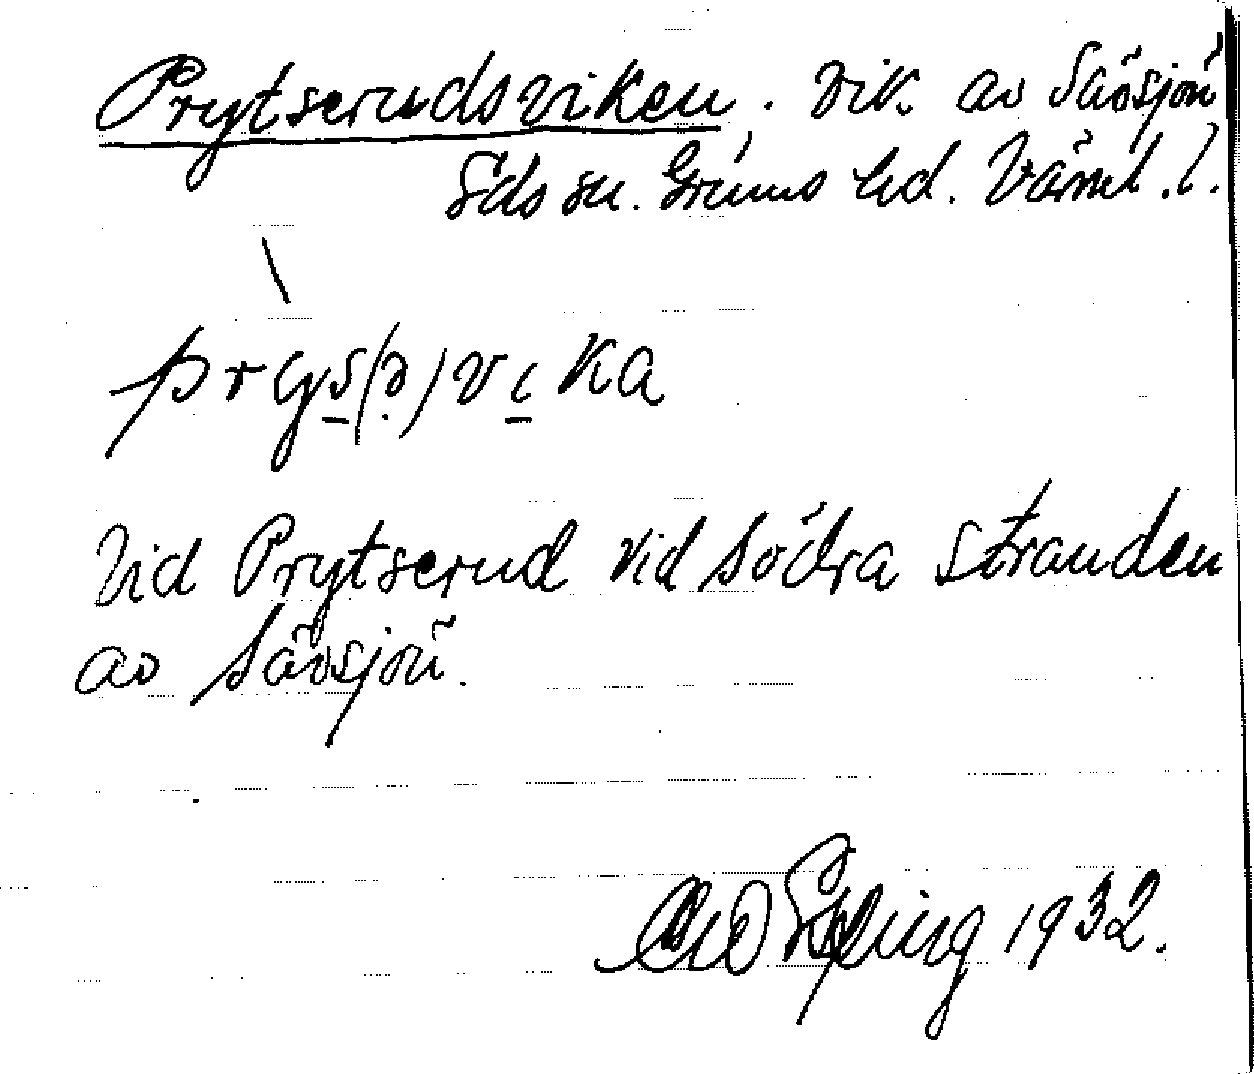 Prytserudsviken. Vik av Sävsjön
Eds sn. Grums hd. Värml. l.
prys(ə)vika
Vid Prytserud vid södra stranden
av Sävsjön.
1932.